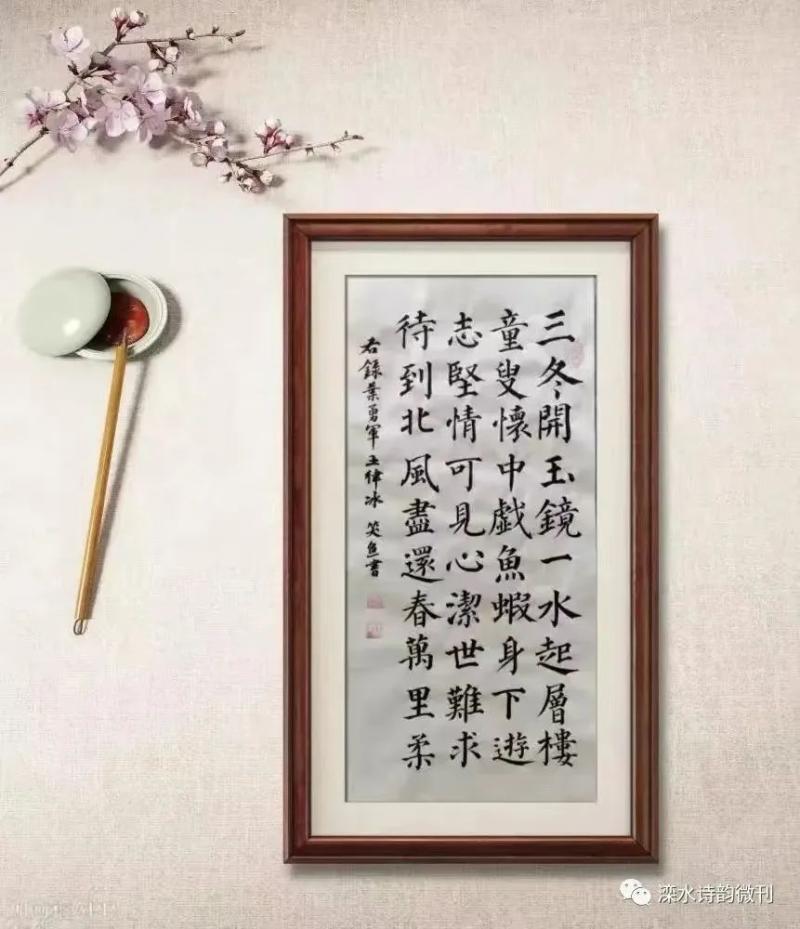 三冬開玉鏡一水起層樓
童叟懷中戯魚蝦身下遊
志堅情可見心潔世難求
待到北風盡還春萬里柔
右録葉勇軍五律冰 笑魚書
滦水诗韵微刊